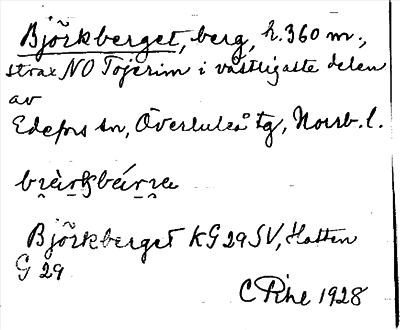 Björkberget, berg, h. 360 m.,
strax NO Tojerim i västligaste delen
av
Edefors sn, Överluleå tg, Norrb. l.
Björkberget KG 29 SV, Hatten
G 29
C Pihl 1928